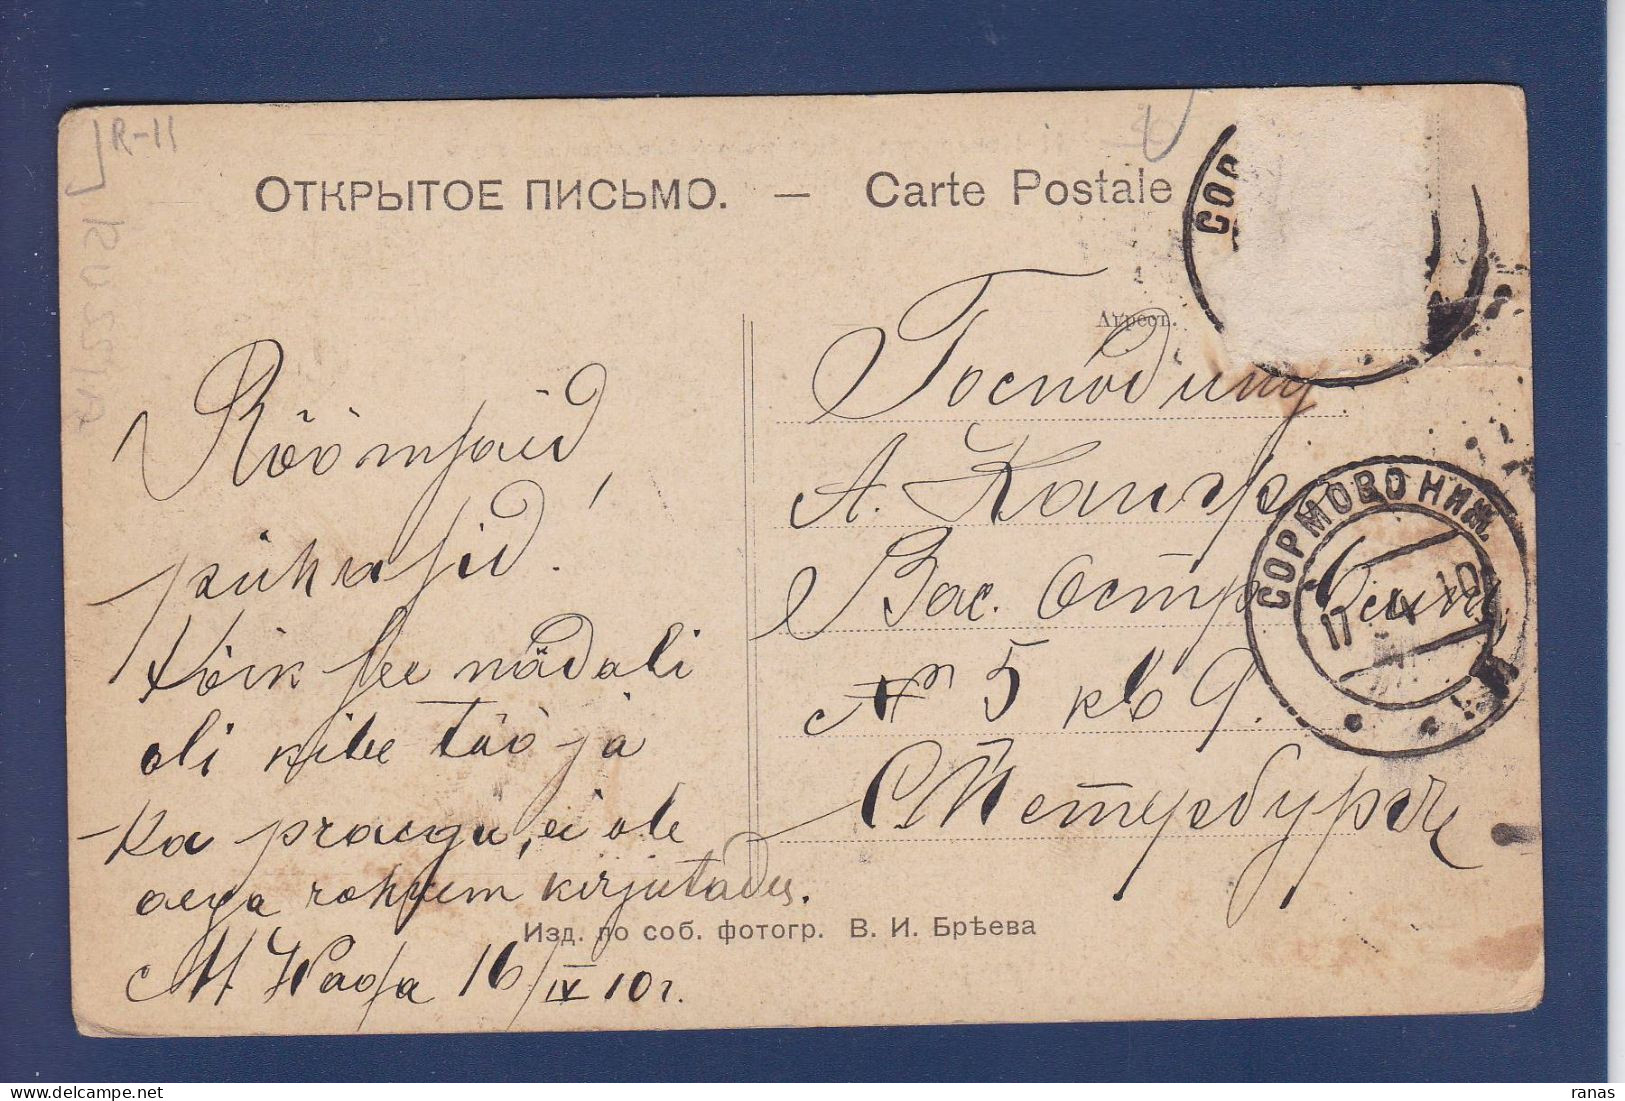 R-11
ОТКРЫТОЕ ПИСЬМО. — Carte Postale
СОР
Адресъ.
Rõõmsaid,
pühasid.
Kõik see nädali
oli kibe töö ja
ka praegu, ei ole
aega rohkem kirjutades.
16/IV 10 г.
Господину
А.
Вас. Остр.
№ 5 кв 9.
С. Петербургъ
СОРМОВО НИЖ.
17 4 10
Изд. по соб. фотогр. В. И. Брѣева
ranas